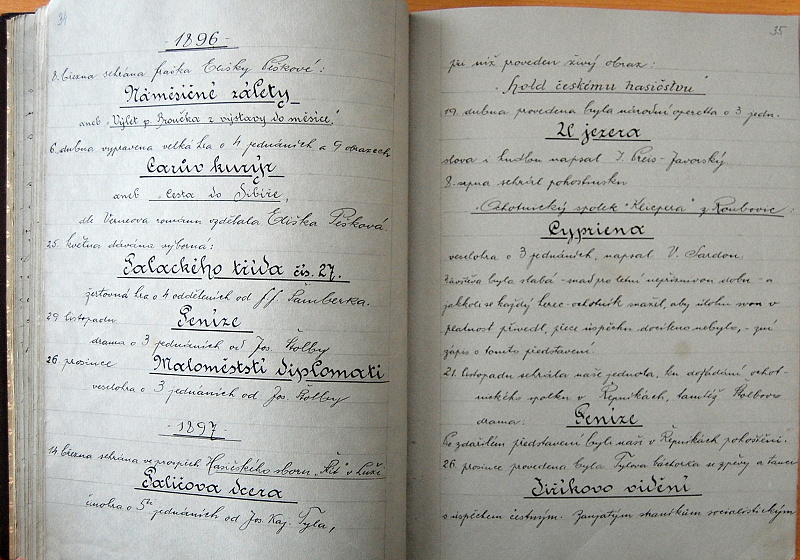 34
- 1896 -
8. března sehrána fraška Elišky Peškové:
Náměsíčné zálety
aneb „Výlet p. Broučka z výstavy do měsíce,“
6. dubna vypravena velká hra o 4 jednáních a 9 obrazech
Carův kurýr
aneb „Cesta do Sibiře,
dle Verneova románu vzdělala Eliška Pešková.
25. května dávána výborná:
Palackého třída čís. 27.
žertovná hra o 4 odděleních od F. F. Šamberka.
29. listopadu Peníze
drama o 3 jednáních od Jos. Štolby
26. prosince Maloměstští diplomati
veselohra o 3 jednáních od Jos. Štolby
- 1897 -
14. března sehrána ve prospěch Hasičského sboru v Luži
Paličova dcera
činohra o 5ti jednáních od Jos. Kaj. Tyla,
35
při níž proveden živý obraz:
„Hold českému hasičstvu“
19. dubna provedena byla národní operetta o 3 jedn.
U jezera
slova i hudbu napsal J. Preis-Javorský.
8. srpna sehrál pohostinsku
„Ochotnický spolek "Klicpera" z Roubovic:
Cypriena
veselohra o 3 jednáních, napsal V. Sardou.
Návštěva byla slabá - snad pro letní nepříznivou dobu - a
jakkoli se každý herec-ochotník snažil, aby úlohu svou v
platnost přivedl, přece úspěchu docíleno nebylo, - zní
zápis o tomto představení.
21. listopadu sehrála naše jednota, ku požádání ochot-
nického spolku v Řepníkách, tamtéž Štolbovo
drama: Peníze
Po zdařilém představení byli naši v Řepníkách pohoštěni.
26. prosince provedena byla Tylova báchorka se zpěvy a tanci
Jiříkovo vidění
s úspěchem čestným. Zaujatým straníkům socialistickým